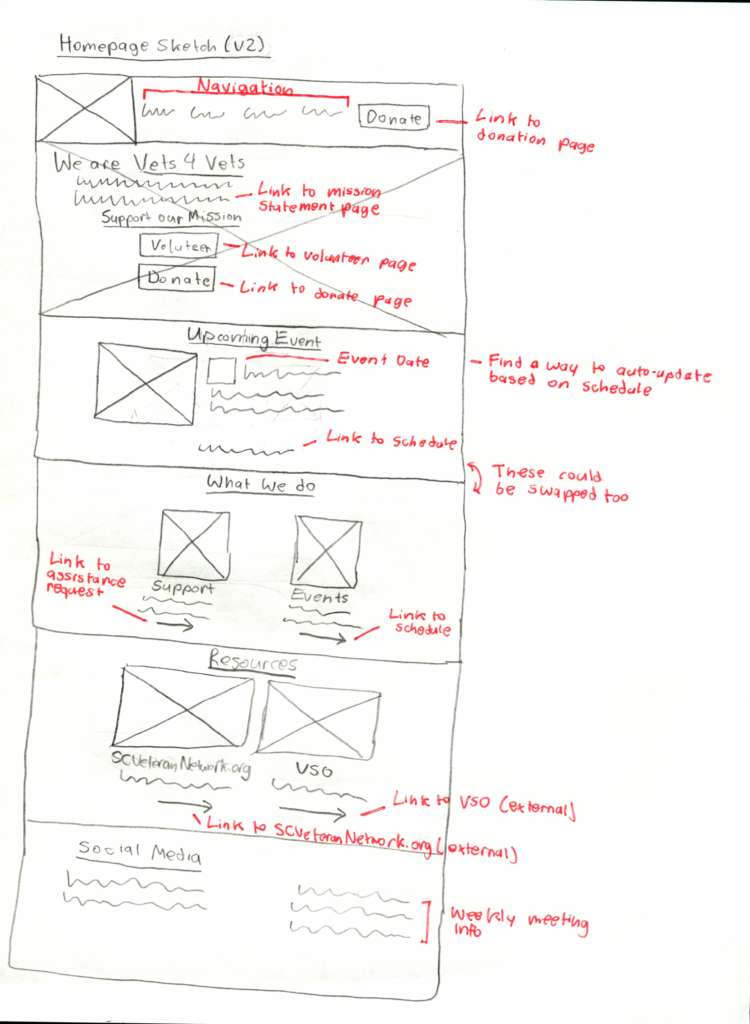 Homepage Sketch (v2)
Navigation
Donate
Link to
donation page
We are Vets 4 Vets
Link to mission
Statement page
Support our Mission
Voluteer
Link to volunteer page
Donate
Link to donate page
Upcoming Event
Event Date
Find a way to auto-update
based on schedule
Link to schedule
These could
be swapped too
What we do
Link to
assistance
request
Support
Events
Link to
schedule
Resources
SCVeteranNetwork.org
VSO
Link to VSO (external)
Link to SCVeteranNetwork.org (external)
Social Media
Weekly meeting
info